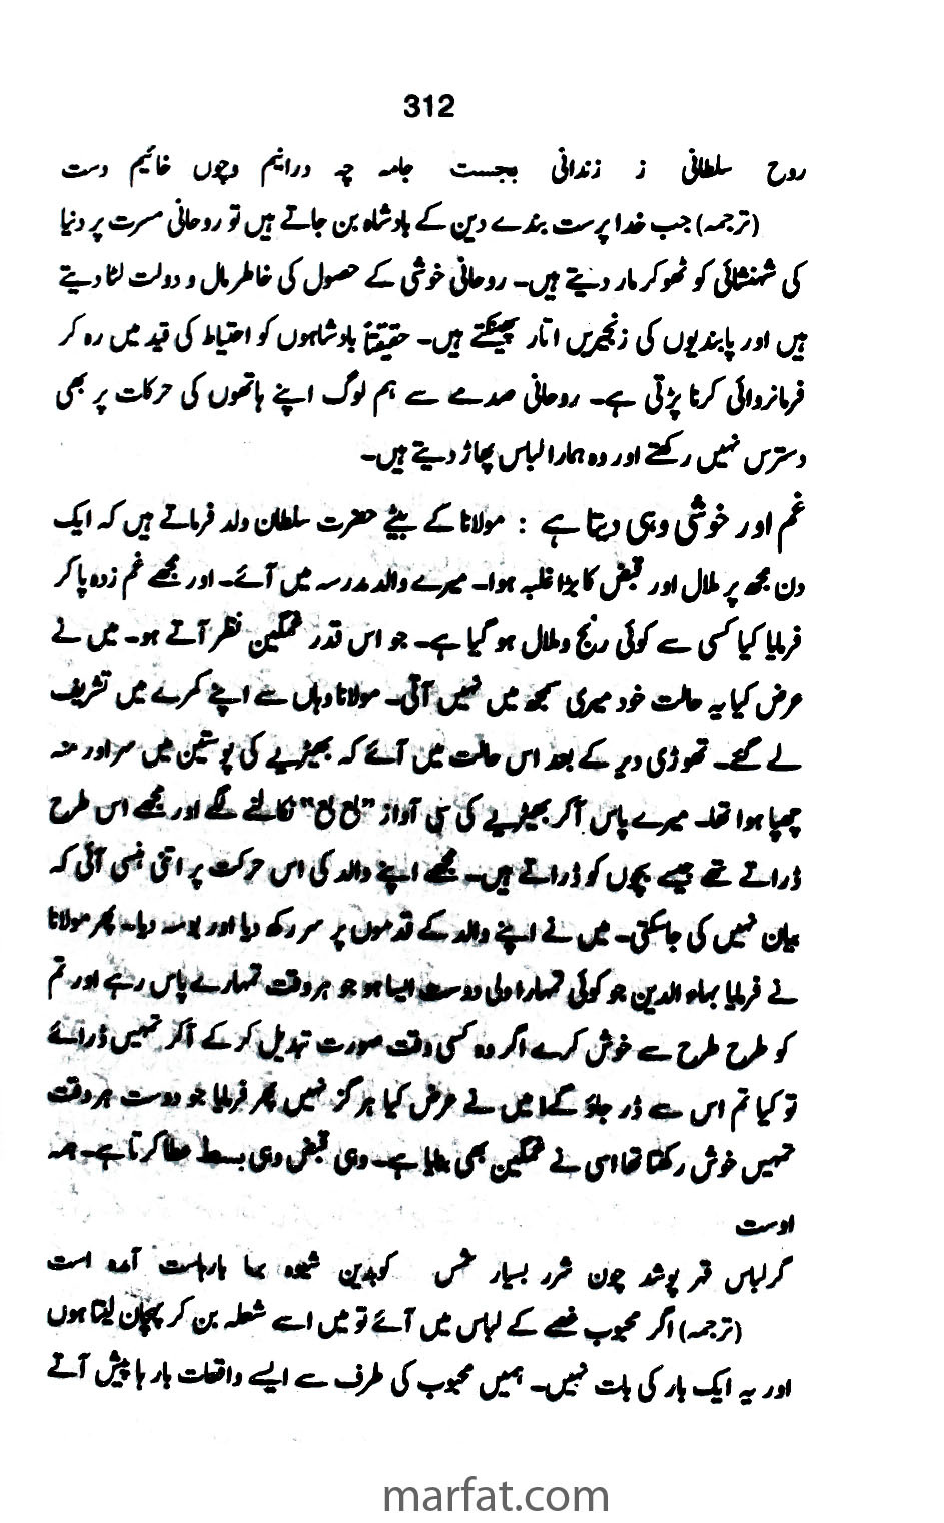 312
روح سلطانی ز زندانی بجست جامہ چہ درانیم وچوں خائیم دست
(ترجمہ) جب خدا پرست بندے دین کے بادشاہ بن جاتے ہیں تو روحانی مسرت پر دنیا
کی شہنشائی کو ٹھوکر مار دیتے ہیں۔ روحانی خوشی کے حصول کی خاطر مال و دولت لٹا دیتے
ہیں اور پابندیوں کی زنجیریں اتار پھینکتے ہیں۔ حقیقتاً بادشاہوں کو احتیاط کی قید میں رہ کر
فرمانروائی کرنا پڑتی ہے۔ روحانی صدمے سے ہم لوگ اپنے ہاتھوں کی حرکات پر بھی
دسترس نہیں رکھتے اور وہ ہمارا لباس پھاڑ دیتے ہیں۔
غم اور خوشی وہی دیتا ہے : مولانا کے بیٹے حضرت سلطان ولد فرماتے ہیں کہ ایک
دن مجھ پر ملال اور قبض کا بڑا غلبہ ہوا۔ میرے والد مدرسہ میں آئے۔ اور مجھے غم زدہ پا کر
فرمایا کیا کسی سے کوئی رنج و ملال ہو گیا ہے۔ جو اس قدر غمگین نظر آتے ہو۔ میں نے
عرض کیا یہ حالت خود میری سمجھ میں نہیں آتی۔ مولانا وہاں سے اپنے کمرے میں تشریف
لے گئے۔ تھوڑی دیر کے بعد اس حالت میں آئے کہ بھیڑیے کی پوستین میں سر اور منہ
چھپا ہوا تھا۔ میرے پاس آکر بھیڑیے کی سی آواز نکالنے لگے اور مجھے اس طرح
ڈراتے تھے جیسے بچوں کو ڈراتے ہیں۔ مجھے اپنے والد کی اس حرکت پر اتنی ہنسی آئی کہ
بیان نہیں کی جا سکتی۔ میں نے اپنے والد کے قدموں پر سر رکھ دیا اور بوسہ دیا۔ پھر مولانا
نے فرمایا بہاء الدین جو کوئی تمہارا ولی دوست ایسا ہو جو ہر وقت تمہارے پاس رہے اور تم
کو طرح طرح سے خوش کرے اگر وہ کسی وقت صورت تبدیل کر کے آکر تمہیں ڈرائے
تو کیا تم اس سے ڈر جاؤ گے؟ میں نے عرض کیا ہرگز نہیں پھر فرمایا جو دوست ہر وقت
تمہیں خوش رکھتا تھا اسی نے غمگین بھی بنایا ہے۔ وہی قبض وہی بسط عطا کرتا ہے۔ ہمہ
اوست
گر لباس قہر پوشد چون شرر بسیار شمس کوبدین شیوہ بما بارہاست آمدہ است
(ترجمہ) اگر محبوب غصے کے لباس میں آئے تو میں اسے شعلہ بن کر پہچان لیتا ہوں
اور یہ ایک بار کی بات نہیں۔ ہمیں محبوب کی طرف سے ایسے واقعات بار ہا پیش آتے
marfat.com